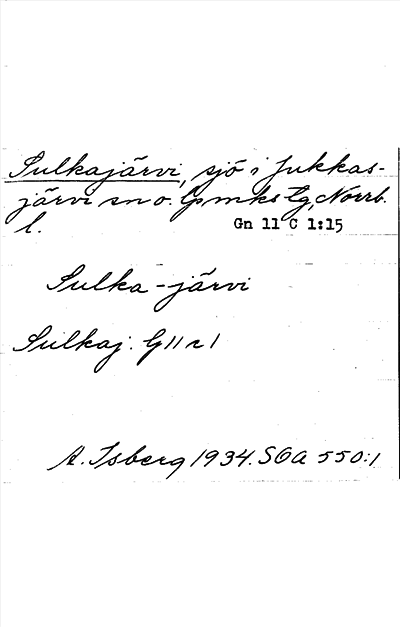 Sulkajärvi, sjö i Jukkas-
järvi sn o. lpmks tg, Norrb.
l.
Gn 11 C 1:15
Sulka-järvi
Sulkaj. G 11 r 1
A. Isberg 1934. SOA 550:1